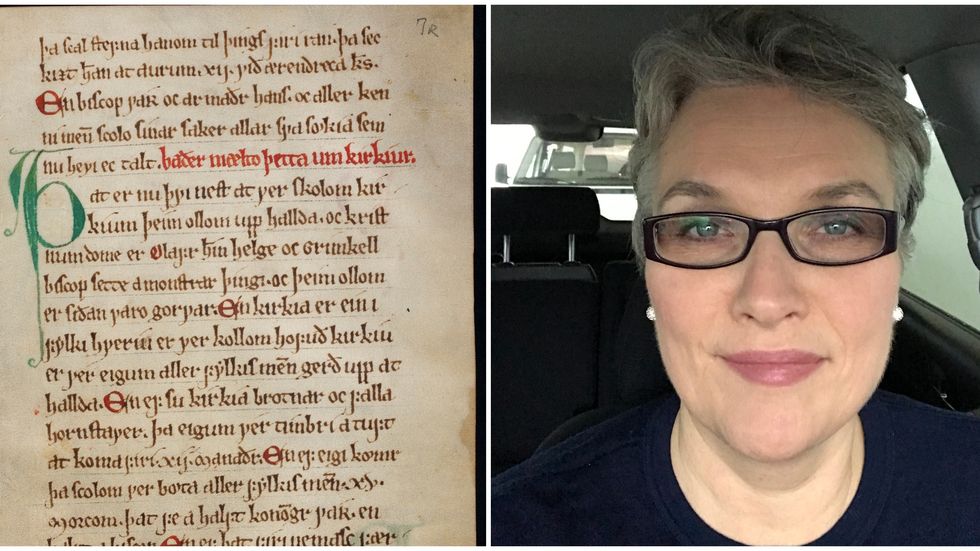 7R
þa scal stefna hanom til þings firi ran. þa sec
kizt hān at aurum .xij. við ærendreca k͞s.
En biscop var oc armaðr hans. oc aller ken
ni men̄ scolo sinar saker allar sva sokia sem
nu hevi ec talt. baðer mælto þetta um kirkiur.
Þat er nu þvi nest at ver skolom kir
kium þeim ollom upp hallda. oc krist
numdome er Olafr hīn helge oc Grimkell
biscop sette a monstrar þingi. oc þeim ollom
er siðan varo gorvar. En kirkia er ein i
fylki hveriu er ver kollom hofuð kirkiu
er ver eigum aller fylkis men̄ gerð upp at
hallda. En ef su kirkia brotnar oc falla
hornstaver. þa eigum ver timbri a tuft
at koma firi .xij. manaðr. En ef eigi komr
þa scolom ver bøta aller fylkis men̄ .xv.
morcom. þat fe a halft konōgr var. en
halft biscop. En ef